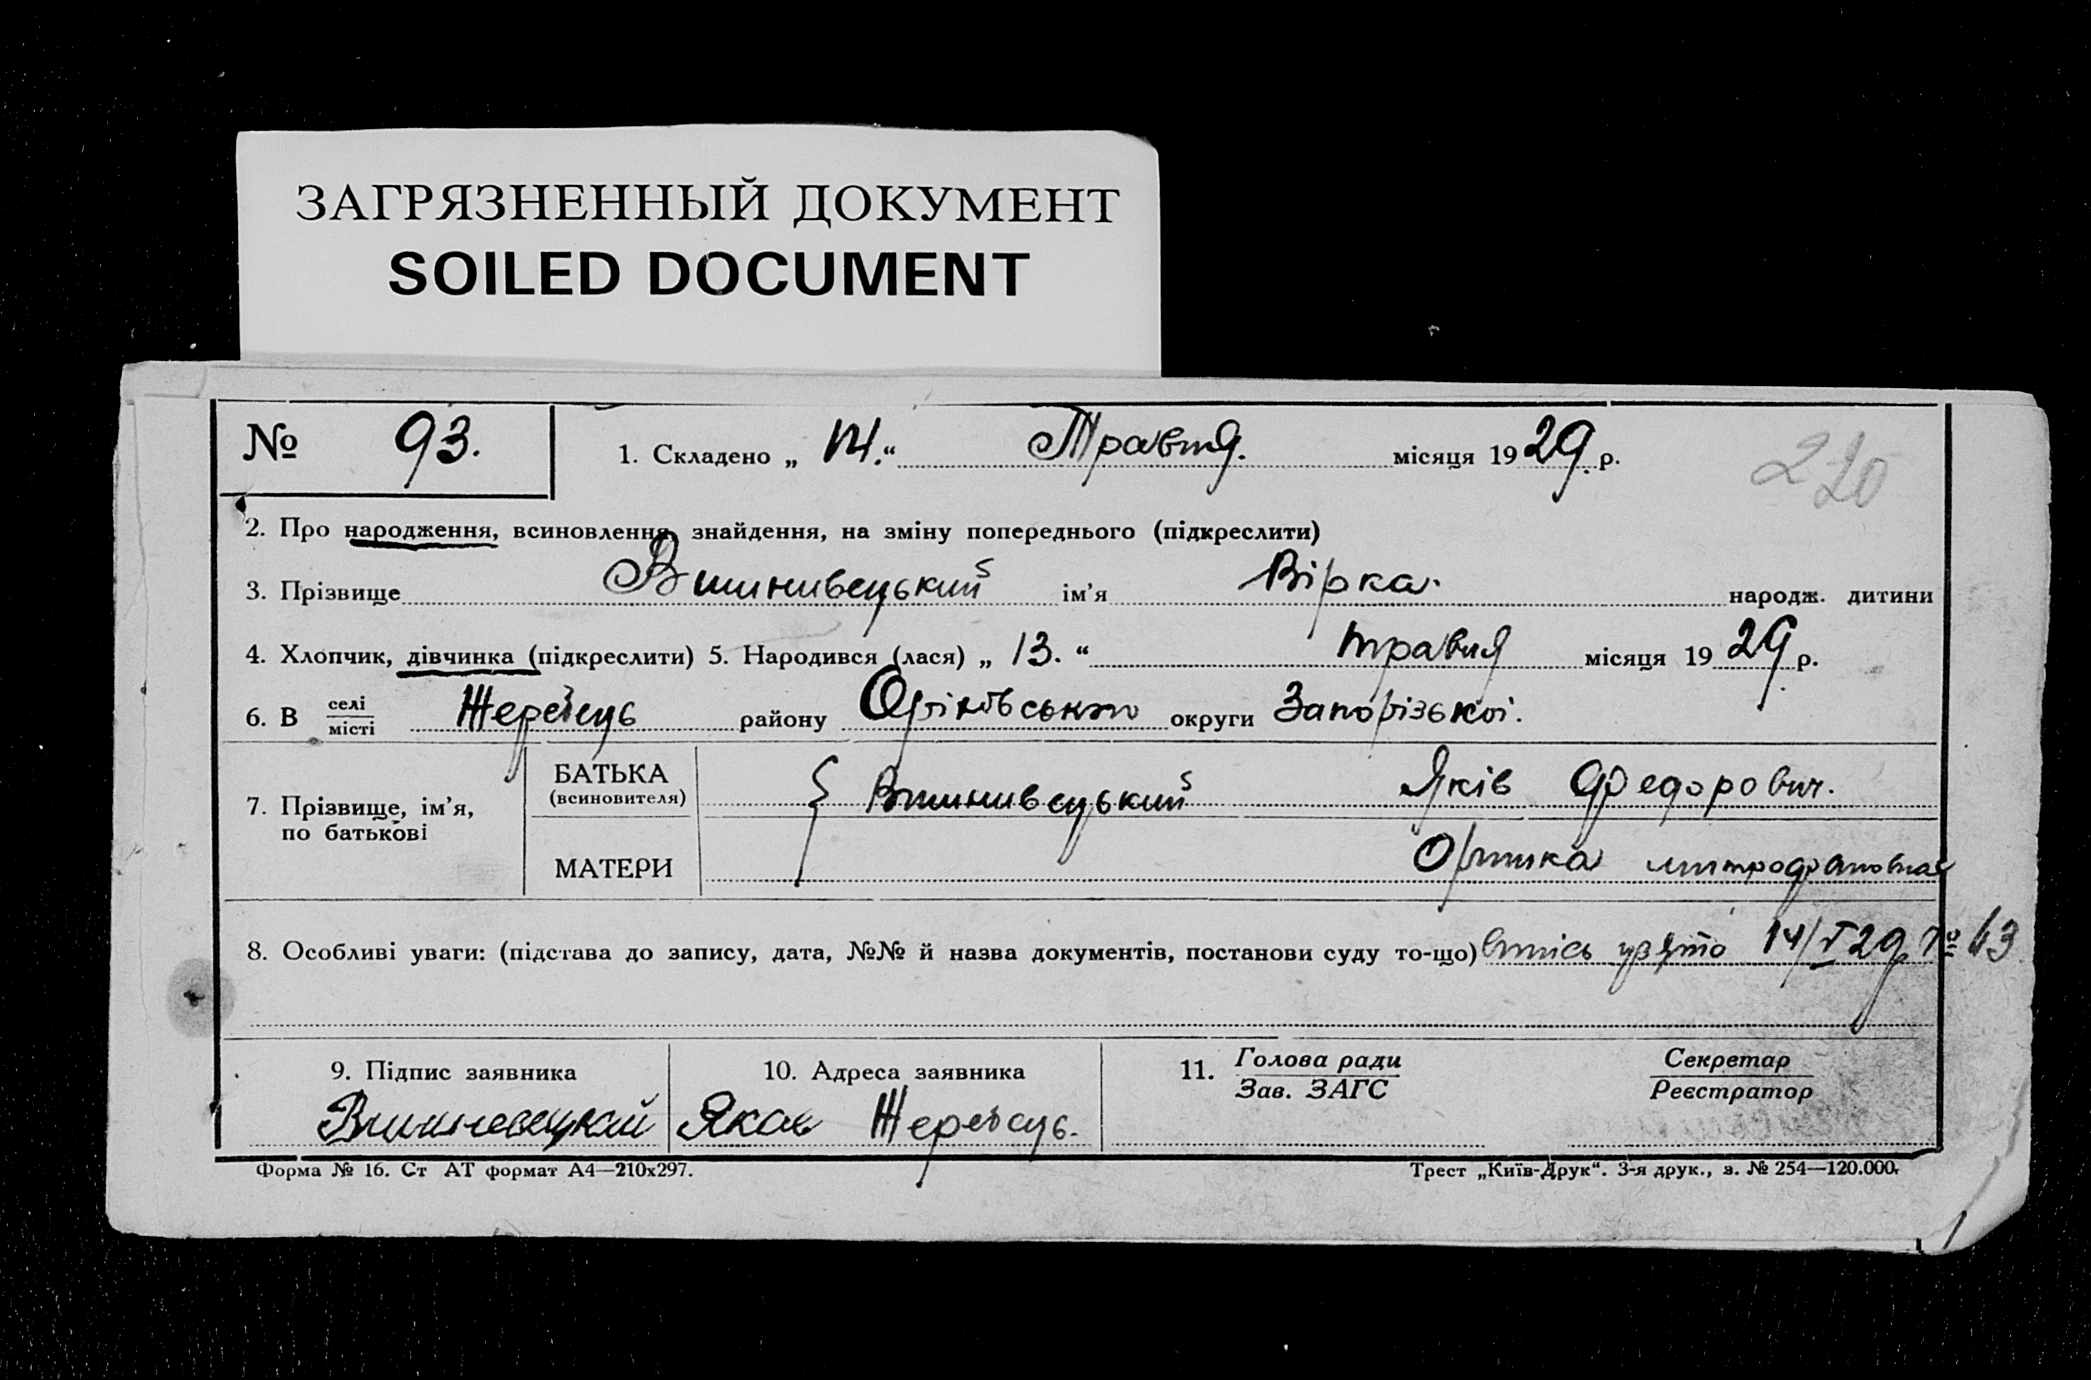 ЗАГРЯЗНЕННЫЙ ДОКУМЕНТ
SOILED DOCUMENT
№ 93. 1. Складено „ 14. “ Травня. місяця 1929. р.
210
2. Про народження, всиновлення, знайдення, на зміну попереднього (підкреслити)
3. Прізвище Вишнивецький ім’я Вірка. народж. дитини
4. Хлопчик, дівчинка (підкреслити) 5. Народився (лася) „ 13. “ травня місяця 1929 р.
6. В селі/місті Жеребець району Оріхівського округи Запорізької.
7. Прізвище, ім’я, по батькові
БАТЬКА (всиновителя) { Вишнивецький Яків Федорович.
МАТЕРИ Оришка митрофановна
8. Особливі уваги: (підстава до запису, дата, №№ й назва документів, постанови суду то-що) взято 14/V 29 № 63
9. Підпис заявника 10. Адреса заявника 11. Голова ради/Зав. ЗАГС Секретар/Реєстратор
Вишневецкий Яков Жеребець.
Форма № 16. Ст АТ формат А4—210х297. Трест „Київ-Друк“. 3-я друк., з. № 254—120.000.